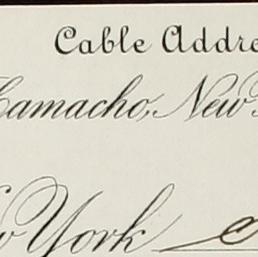 Cable Addre
Camacho, New
w York